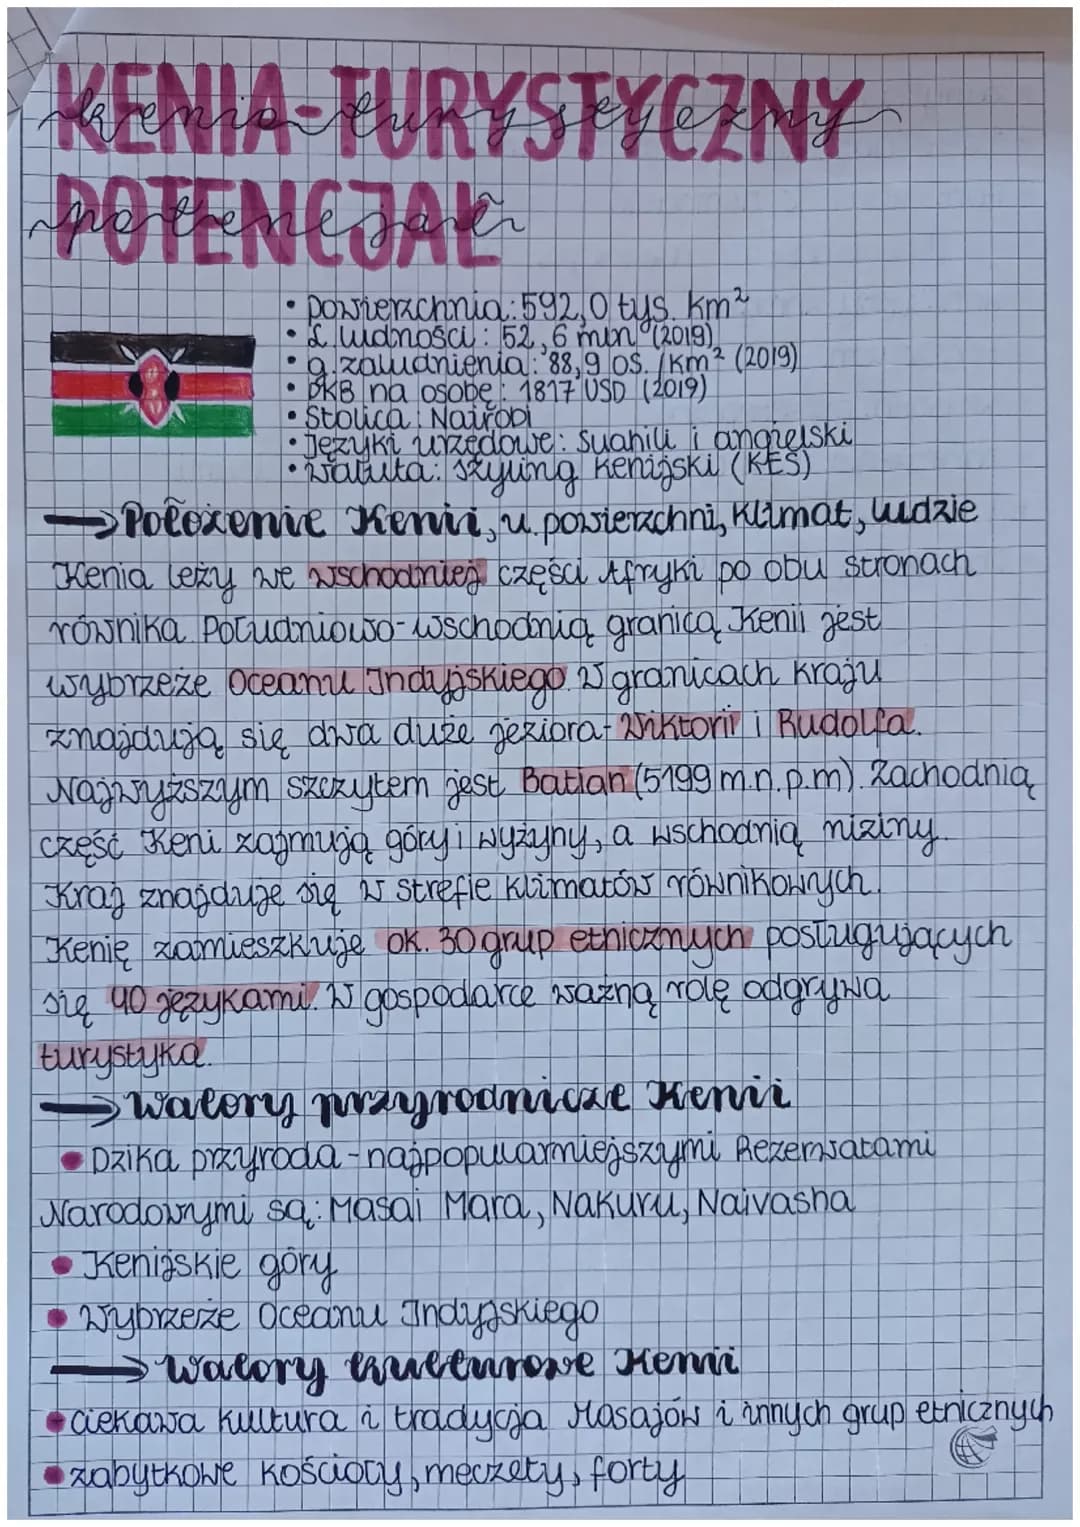 KENIA-TURYSTYCZNY
kenia-turystyczny
POTENCJAŁ
potencjał
• powierzchnia: 592,0 tys. km²
• l. ludności: 52,6 mln (2019)
• g. zaludnienia: 88,9 os. /km² (2019)
• PKB na osobę: 1817 USD (2019)
• Stolica: Nairobi
• Języki urzędowe: suahili i angielski
• Waluta: szyling kenijski (KES)
→ Położenie Kenii, u. powierzchni, klimat, ludzie
Kenia leży we wschodniej części Afryki po obu stronach
równika. Południowo-wschodnią granicą Kenii jest
wybrzeże Oceanu Indyjskiego. W granicach kraju
znajdują się dwa duże jeziora- Wiktorii i Rudolfa.
Najwyższym szczytem jest Batian (5199 m.n.p.m). Zachodnią
część Keni zajmują góry i wyżyny, a wschodnią niziny.
Kraj znajduje się w strefie klimatów równikowych.
Kenię zamieszkuje ok. 30 grup etnicznych posługujących
się 40 językami. W gospodarce ważną rolę odgrywa
turystyka.
→ Walory przyrodnicze Kenii
• Dzika przyroda - najpopularniejszymi Rezerwatami
Narodowymi są: Masai Mara, Nakuru, Naivasha
• Kenijskie góry
• Wybrzeże Oceanu Indyjskiego
→ Walory kulturowe Kenii
• ciekawa kultura i tradycja Masajów i innych grup etnicznych
• zabytkowe kościoły, meczety, forty